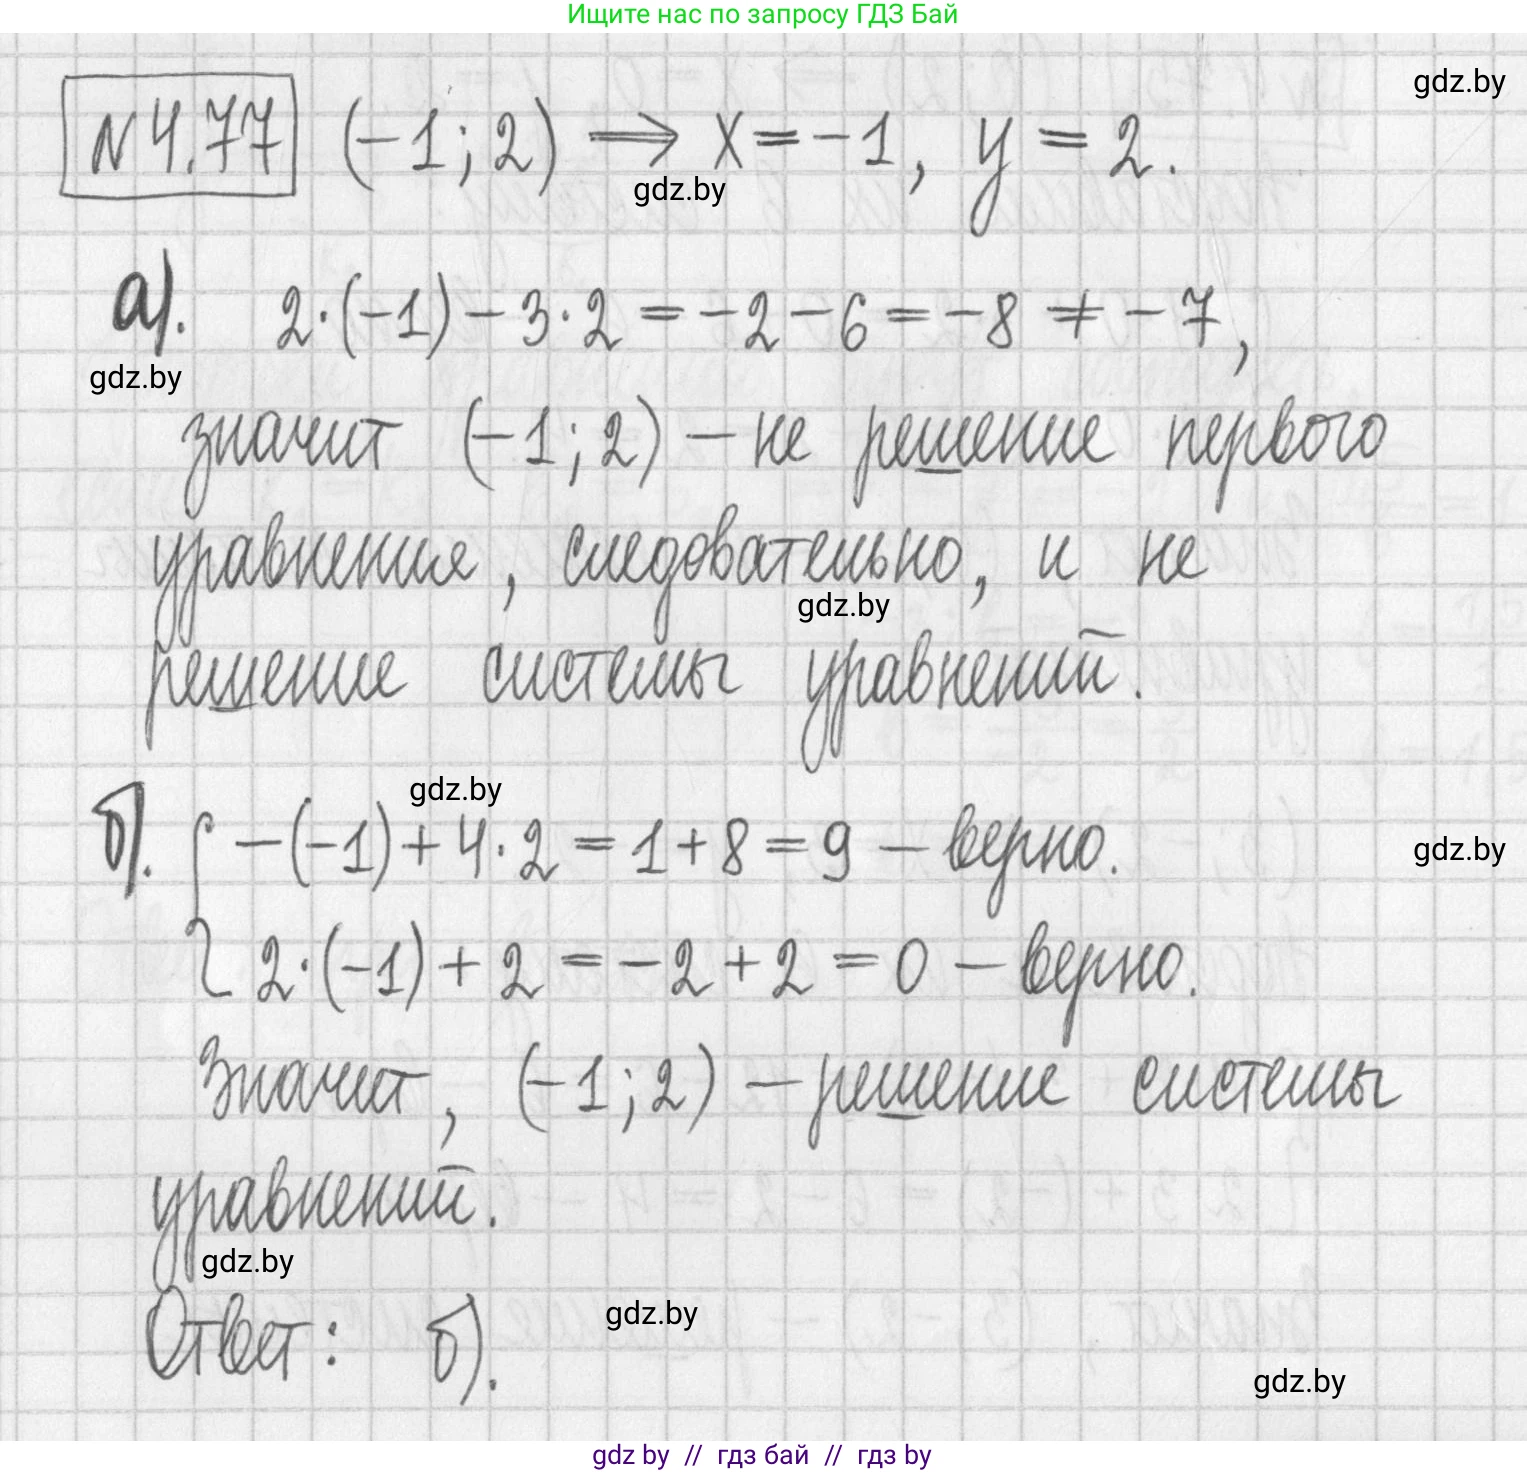 Ищите нас по запросу ГДЗ Бай
gdz.by
N 4.77 (-1; 2) ⟹ x = -1, y = 2.
gdz.by
а). 2·(-1) - 3·2 = -2 - 6 = -8 ≠ -7,
gdz.by
значит (-1; 2) - не решение первого
уравнения, следовательно, и не
gdz.by
решение системы уравнений.
gdz.by
б). { -(-1) + 4·2 = 1 + 8 = 9 - верно.
gdz.by
2·(-1) + 2 = -2 + 2 = 0 - верно.
Значит, (-1; 2) - решение системы
уравнений.
gdz.by
gdz.by
Ответ: б).
gdz.by
gdz by // гдз бай // гдз by